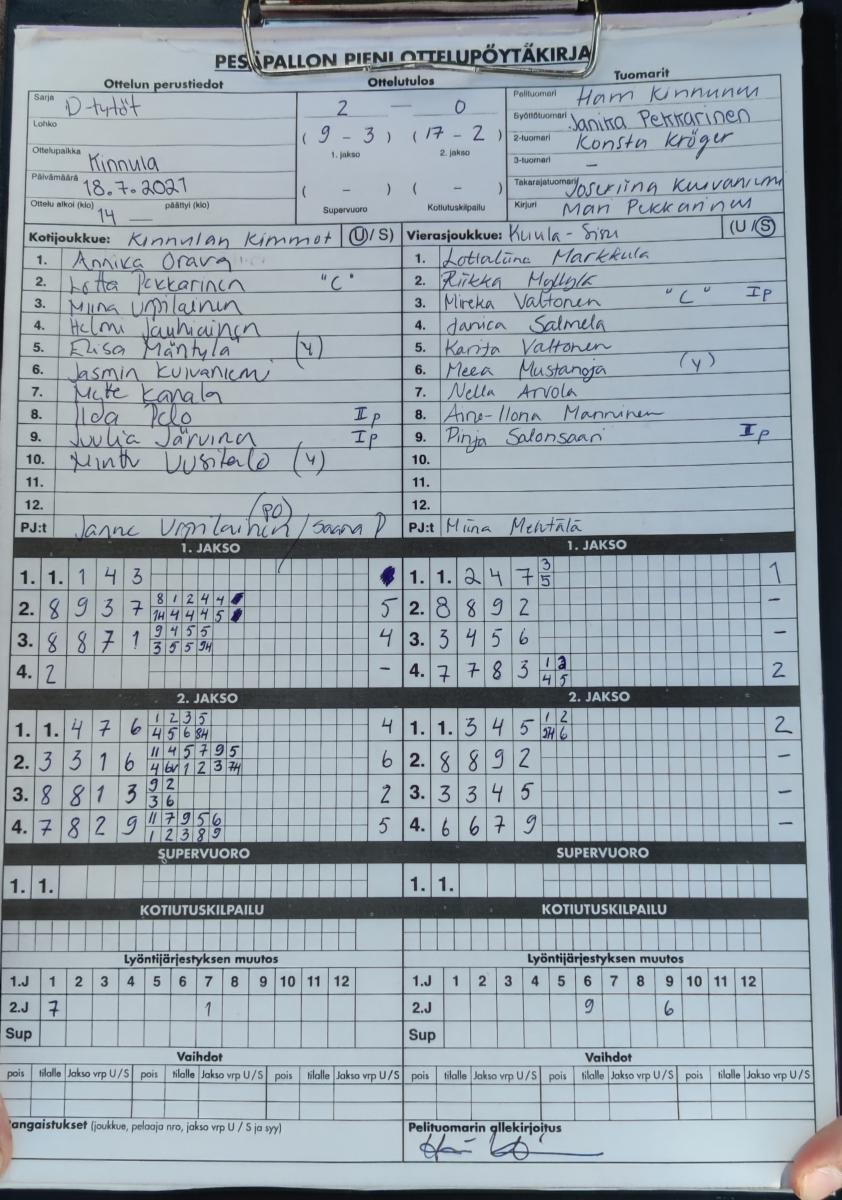 PESÄPALLON PIENI OTTELUPÖYTÄKIRJA
Ottelun perustiedot
Sarja D-tytöt
Lohko
Ottelupaikka Kinnula
Päivämäärä 18.7.2021
Ottelu alkoi (klo) 14 päättyi (klo)
Ottelutulos
2 — 0
( 9 - 3 ) ( 17 - 2 )
1. jakso 2. jakso
( - ) ( - )
Supervuoro Kotiutuskilpailu
Tuomarit
Pelituomari Kinnunen
Syöttötuomari Janika Pekkarinen
2-tuomari Konsta Kröger
3-tuomari –
Takarajatuomari Kuivaniemi
Kirjuri Mari Pekkarinen
Kotijoukkue: Kinnulan Kimmot (U/ S)
1. Annika Orava
2. Lotta Pekkarinen "C"
3. Miina Urpilainen
4. Helmi Jauhiainen
5. Elisa Mäntylä (4)
6. Jasmin Kuivaniemi
7. Kanala
8. Iida Pelo II p
9. Juulia Järvinen I p
10. Minttu Uusitalo (4)
11.
12.
PJ:t Janne Urpilainen (PO) / Saana P
Vierasjoukkue: Kuula-Sisu (U /S)
1. Lottaliina Markkula
2. Riikka Myllylä
3. Mireka Valtonen "C" I p
4. Janica Salmela
5. Karita Valtonen
6. Meea Mustanoja (Y)
7. Nella Arvola
8. Aine-Ilona Manninen
9. Pinja Salonsaari II p
10.
11.
12.
PJ:t Miina Mehtälä
1. JAKSO
1. 1. 1 4 3
2. 8 9 3 7 8 1 2 4 4 5
14 4 4 4 5
3. 8 8 7 1 9 4 5 5 4
3 5 5 9H
4. 2 –
2. JAKSO
1. 1. 4 7 6 1 2 3 5 4
4 5 6 8H
2. 3 3 1 6 11 4 5 7 9 5 6
4 6V 1 2 3 7H
3. 8 8 1 3 9 2 2
3 6
4. 7 8 2 9 11 7 9 5 6 5
1 2 3 8 9
SUPERVUORO
1. 1.
KOTIUTUSKILPAILU
Lyöntijärjestyksen muutos
1.J 1 2 3 4 5 6 7 8 9 10 11 12
2.J 7 1
Sup
Vaihdot
pois tilalle Jakso vrp U / S pois tilalle Jakso vrp U / S pois tilalle Jakso vrp U / S
angaistukset (joukkue, pelaaja nro, jakso vrp U / S ja syy)
1. JAKSO
1. 1. 2 4 7 3 1
5
2. 8 8 9 2 –
3. 3 4 5 6 –
4. 7 7 8 3 1 2 2
4 5
2. JAKSO
1. 1. 3 4 5 1 2 2
2H 6
2. 8 8 9 2 –
3. 3 3 4 5 –
4. 6 6 7 9 –
SUPERVUORO
1. 1.
KOTIUTUSKILPAILU
Lyöntijärjestyksen muutos
1.J 1 2 3 4 5 6 7 8 9 10 11 12
2.J 9 6
Sup
Vaihdot
pois tilalle Jakso vrp U / S pois tilalle Jakso vrp U / S pois tilalle Jakso vrp U / S
Pelituomarin allekirjoitus